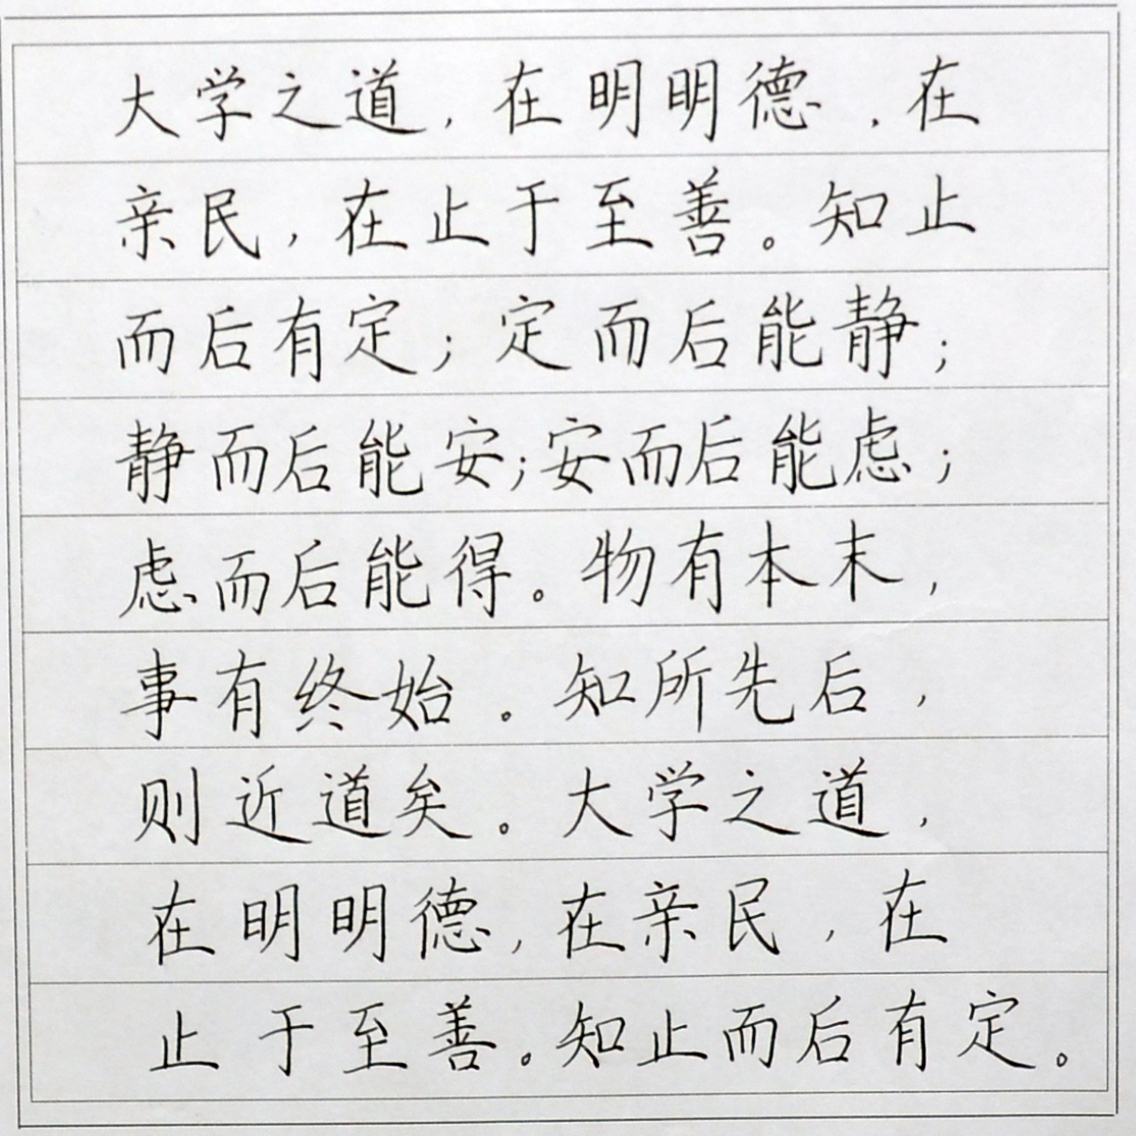 大学之道，在明明德，在
亲民，在止于至善。知止
而后有定；定而后能静；
静而后能安；安而后能虑；
虑而后能得。物有本末，
事有终始。知所先后，
则近道矣。大学之道，
在明明德，在亲民，在
止于至善。知止而后有定。